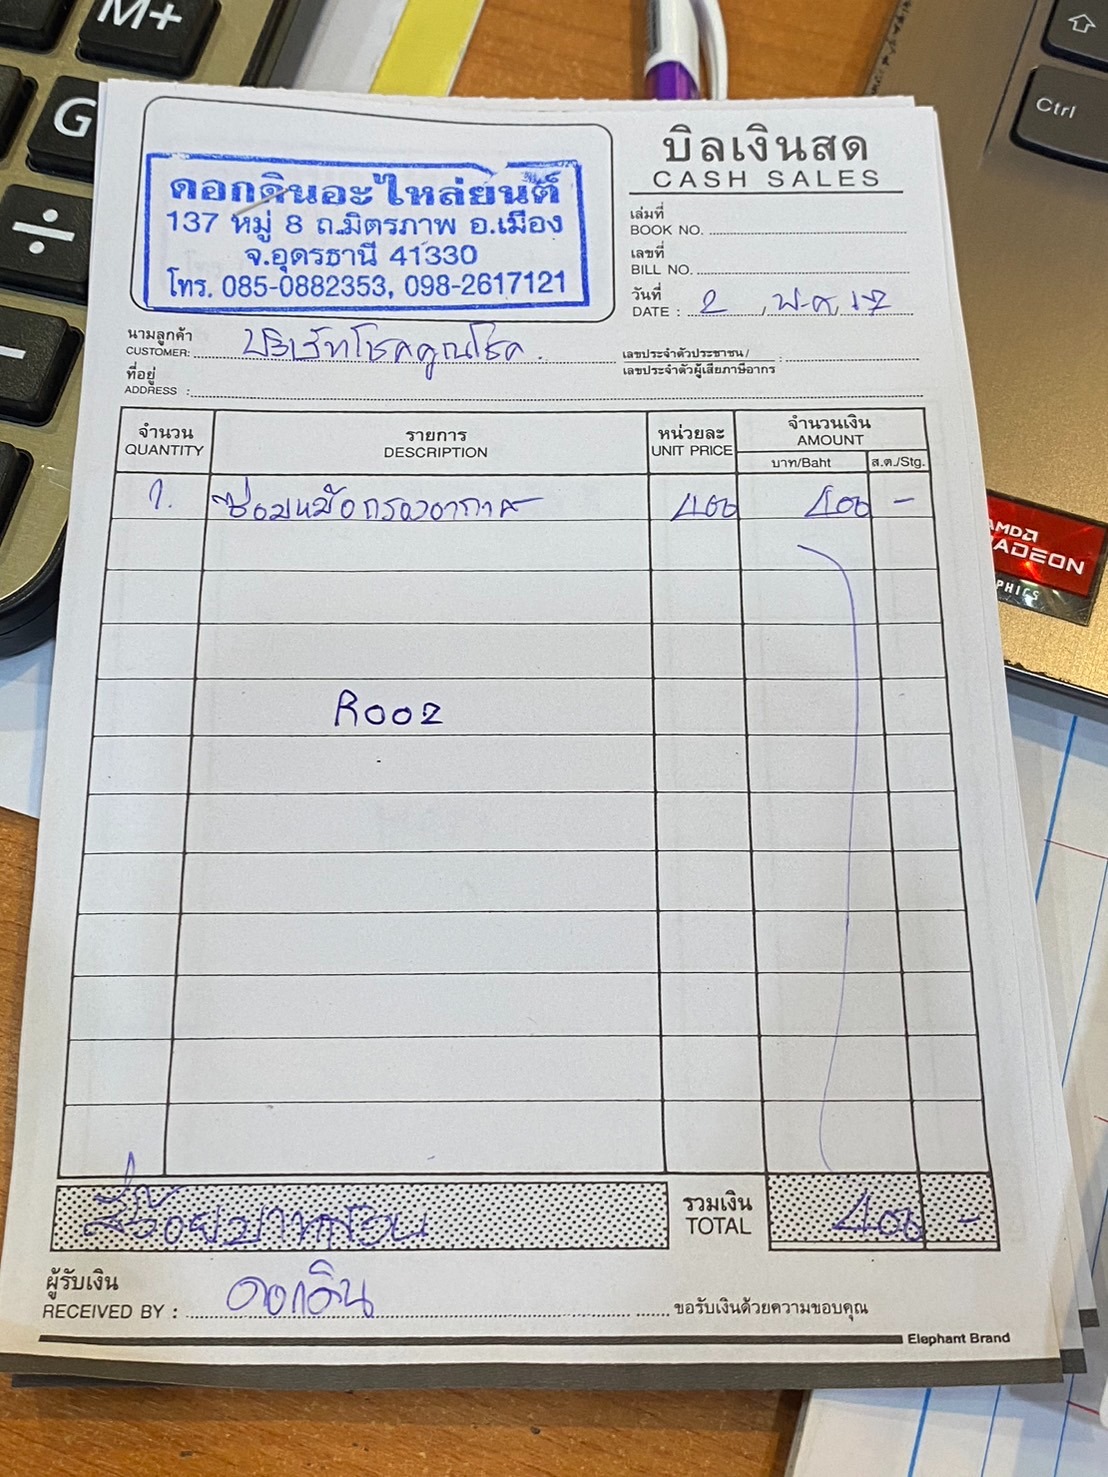 M+
G
÷
Ctrl
บิลเงินสด
CASH SALES
ดอกดินอะไหล่ยนต์
137 หมู่ 8 ถ.มิตรภาพ อ.เมือง
จ.อุดรธานี 41330
โทร. 085-0882353, 098-2617121
เล่มที่
BOOK NO.
เลขที่
BILL NO.
วันที่
DATE : 2 พ.ค.
นามลูกค้า
CUSTOMER: บริษัทโชคคูณโชค
เลขประจำตัวประชาชน/ :
เลขประจำตัวผู้เสียภาษีอากร
ที่อยู่
ADDRESS :
จำนวน รายการ หน่วยละ จำนวนเงิน
QUANTITY DESCRIPTION UNIT PRICE AMOUNT
บาท/Baht ส.ต./Stg.
1. ซ่อมหม้อกรองอากาศ 400 400 -
R002
สี่ร้อยบาทถ้วน
รวมเงิน
TOTAL 400 -
ผู้รับเงิน
RECEIVED BY : ดอกดิน ขอรับเงินด้วยความขอบคุณ
Elephant Brand
AMD
RADEON
GRAPHICS